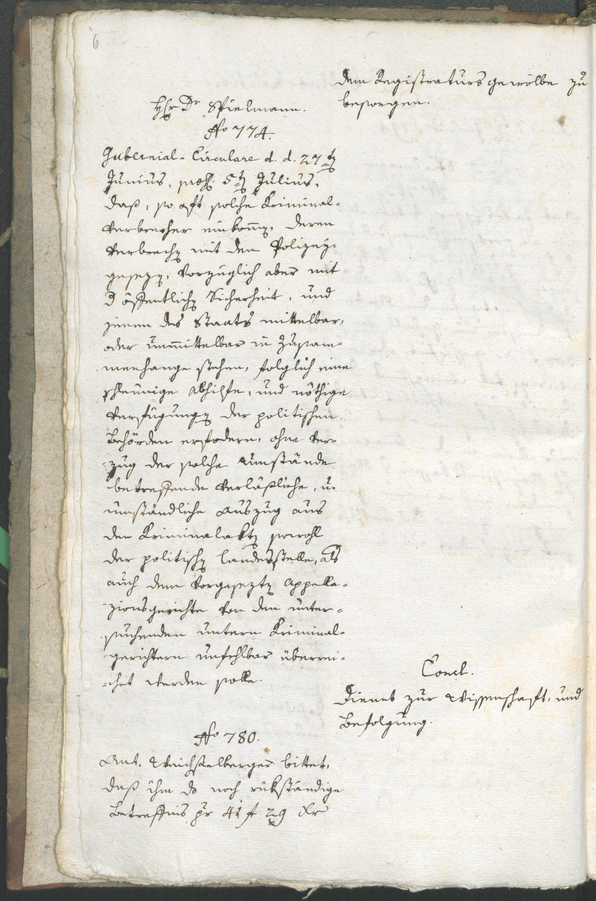 6
dem Registratursgewölbe zu
besorgen.
Hr. Dr. Spielmann.
No 774.
Gubernial-Circulare d. d. 27t
Junius, praes. 5t Julius,
daß, so oft solche Kriminal-
verbrecher einkomen, deren
Verbrechen mit dem Polizey-
gesezen, vorzüglich aber mit
d öffentlichen Sicherheit, und
jenen des Staats mittelbar,
oder unmittelbar in Zusam-
menhange stehen, folglich eine
schleunige Abhilfe, und nöthige
Verfügungen der politischen
Behörden erfodern, ohne Ver-
zug der solche Umstände
betreffende verläßliche, u
umständliche Auszug aus
den Kriminalakten sowohl
der politischen Landesstelle, als
auch dem vorgesezten Appella-
zionsgerichte von den unter-
suchenden untern Kriminal-
gerichtern unfehlbar überrei-
chet werden solle.
Concl.
Dienet zur Wissenschaft, und
Befolgung.
No 780.
Ant. Weichselberger bittet,
daß ihm do noch rükständige
Betreffnis pr 41 f 29 Xr